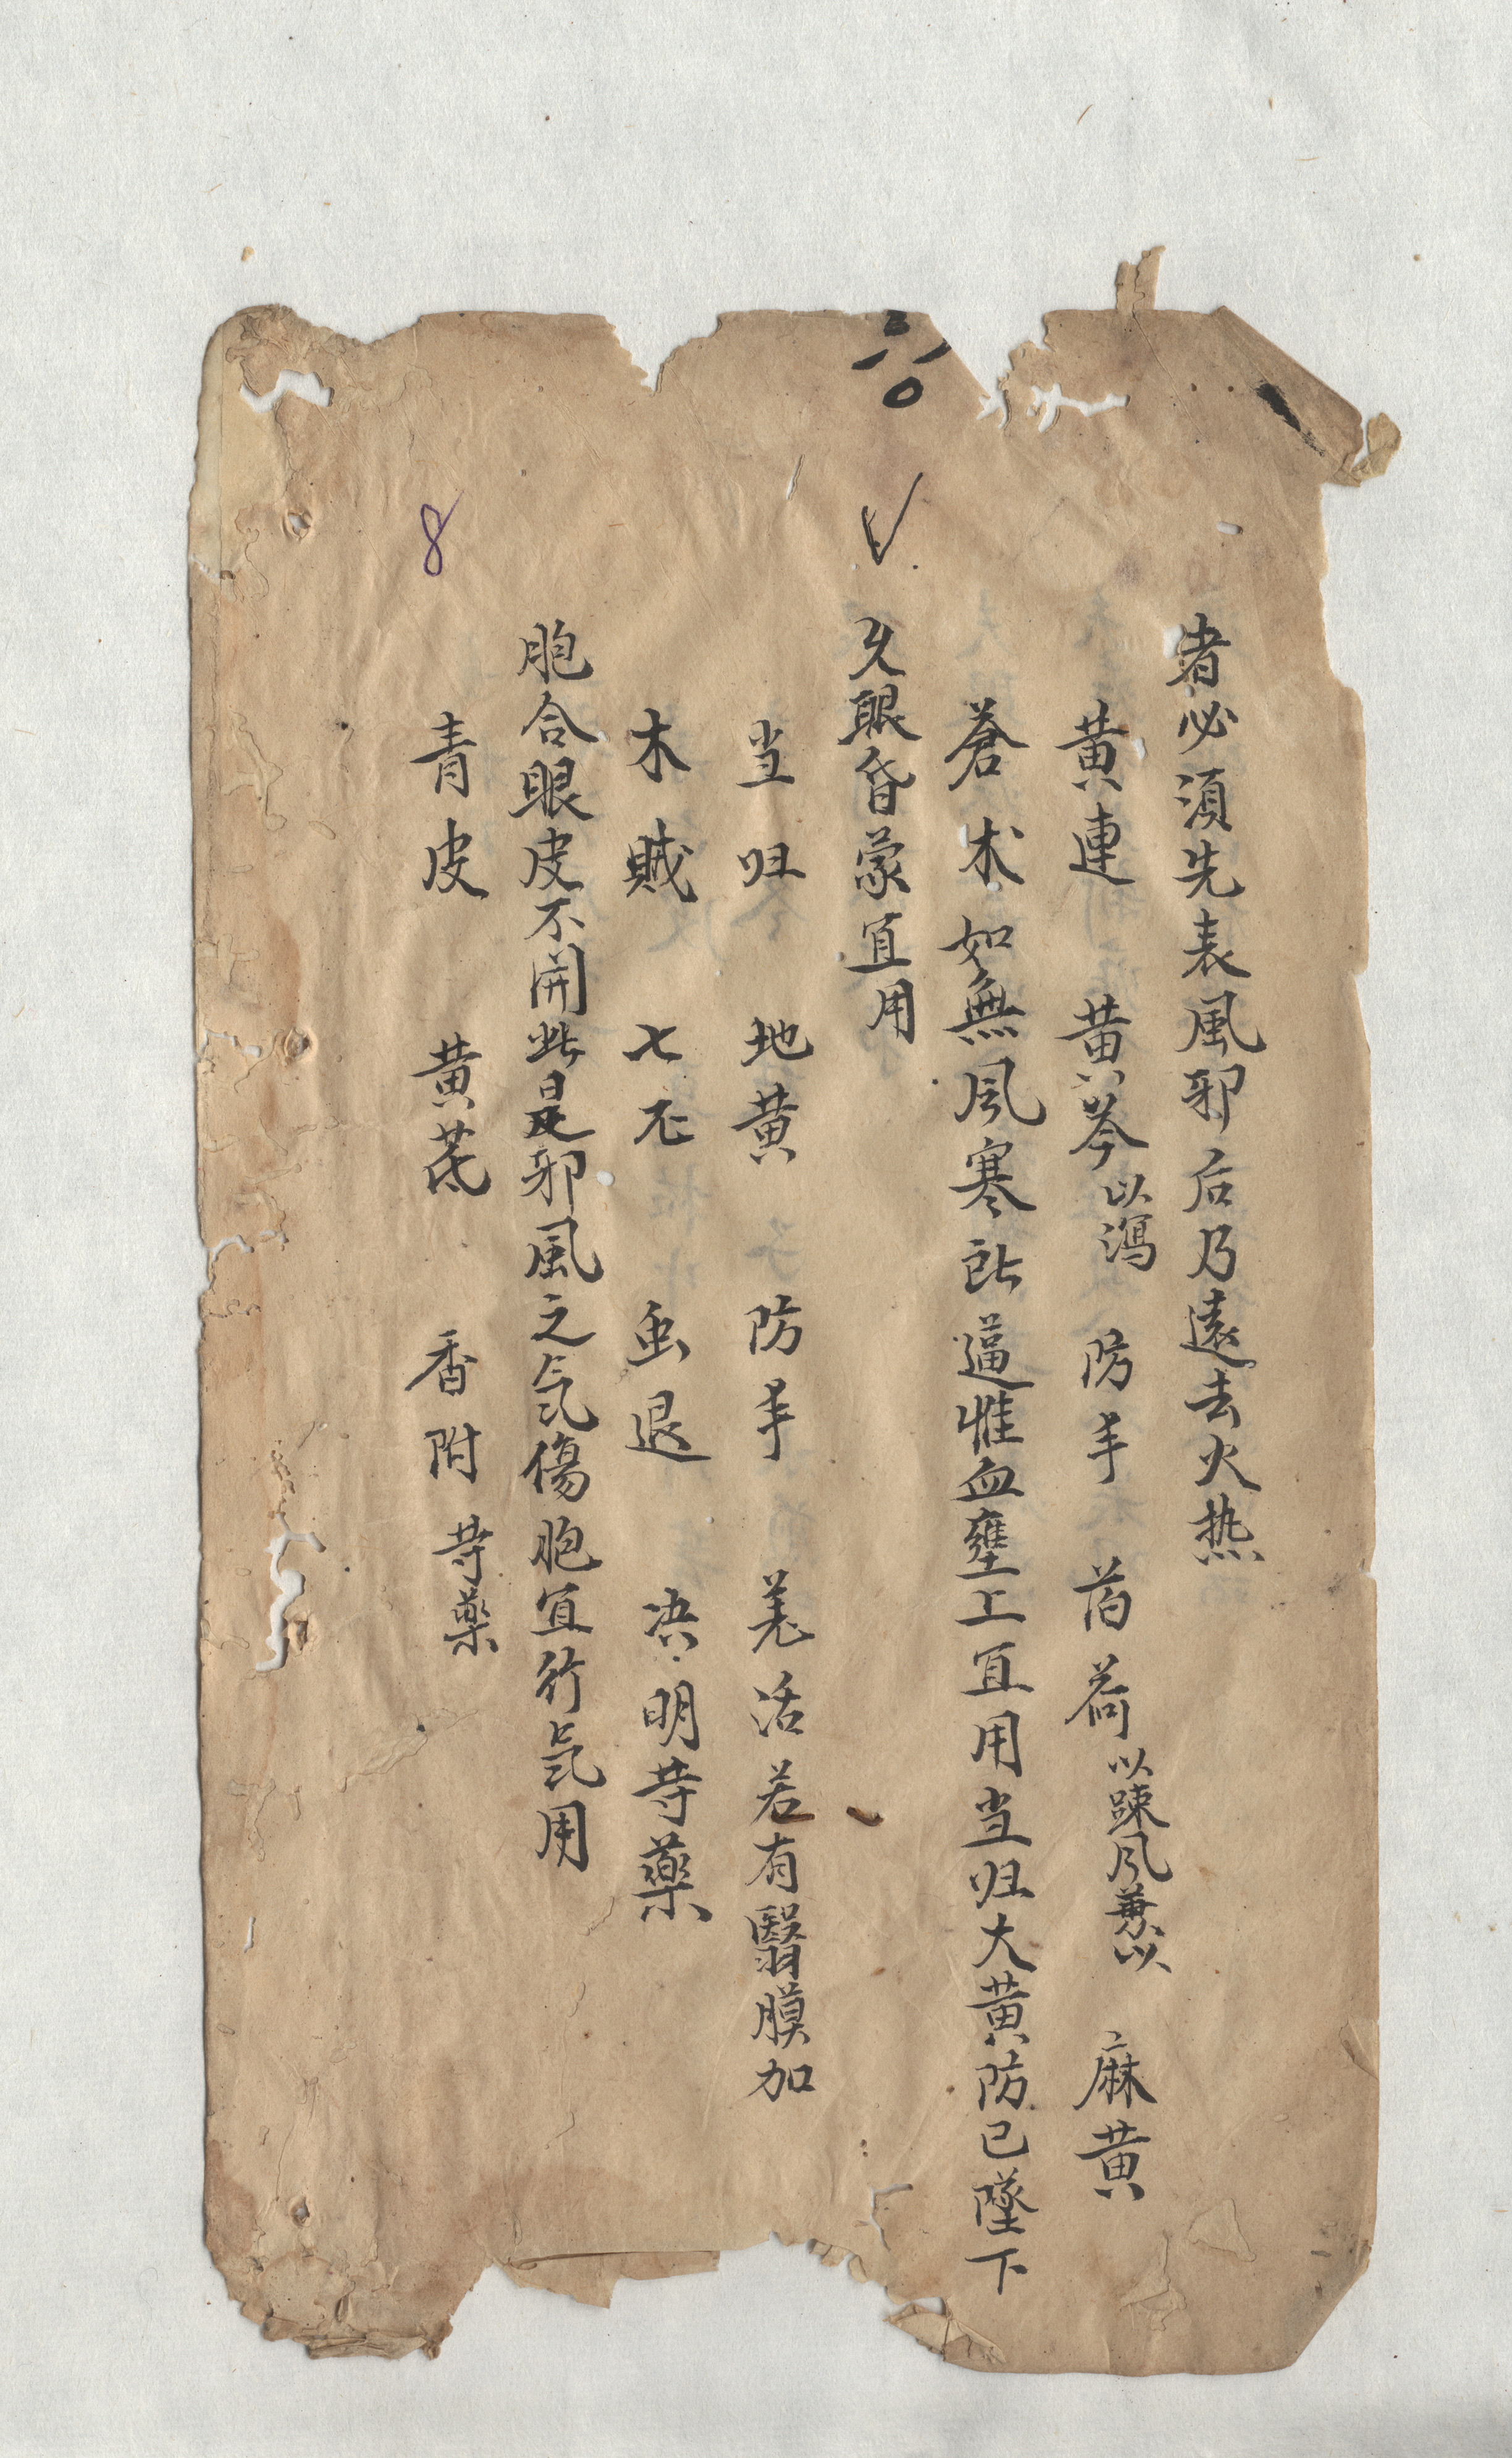 者必須先表風邪后乃遠去火热
黄連 黄芩以瀉 防丰 苩荷以踈风兼以 麻黄
蒼朮如無风寒所逼惟血壅上宜用当归大黄防已墜下
久眼昏蒙宜用
当归 地黄 防丰 羌活若有翳膜加
木賊 七 虫退 决明䓁藥
胞合眼皮不開此是邪風之氣傷胞宜行氣用
青皮 黄茋 香附䓁藥
8